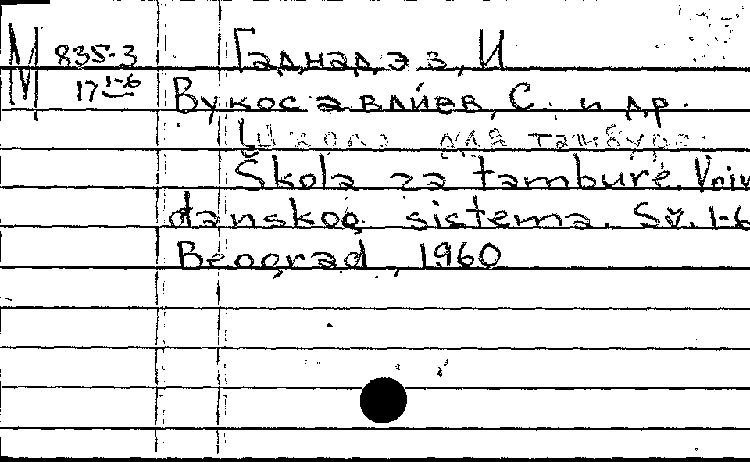 М 835-3 Гаднадэв, И
17 1-6 Вукосавлйев, С. и др.
Школа для тамбуре.
Škola za tambure. Voiv
danskog sistema. Sv. 1-6
Beograd, 1960